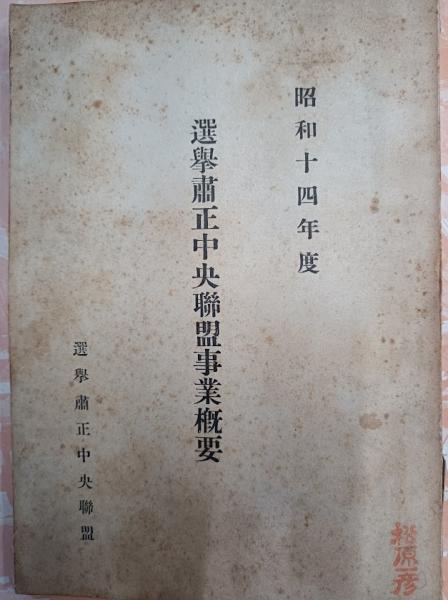 昭和十四年度
選擧肅正中央聯盟事業概要
選擧肅正中央聯盟
松原一彦